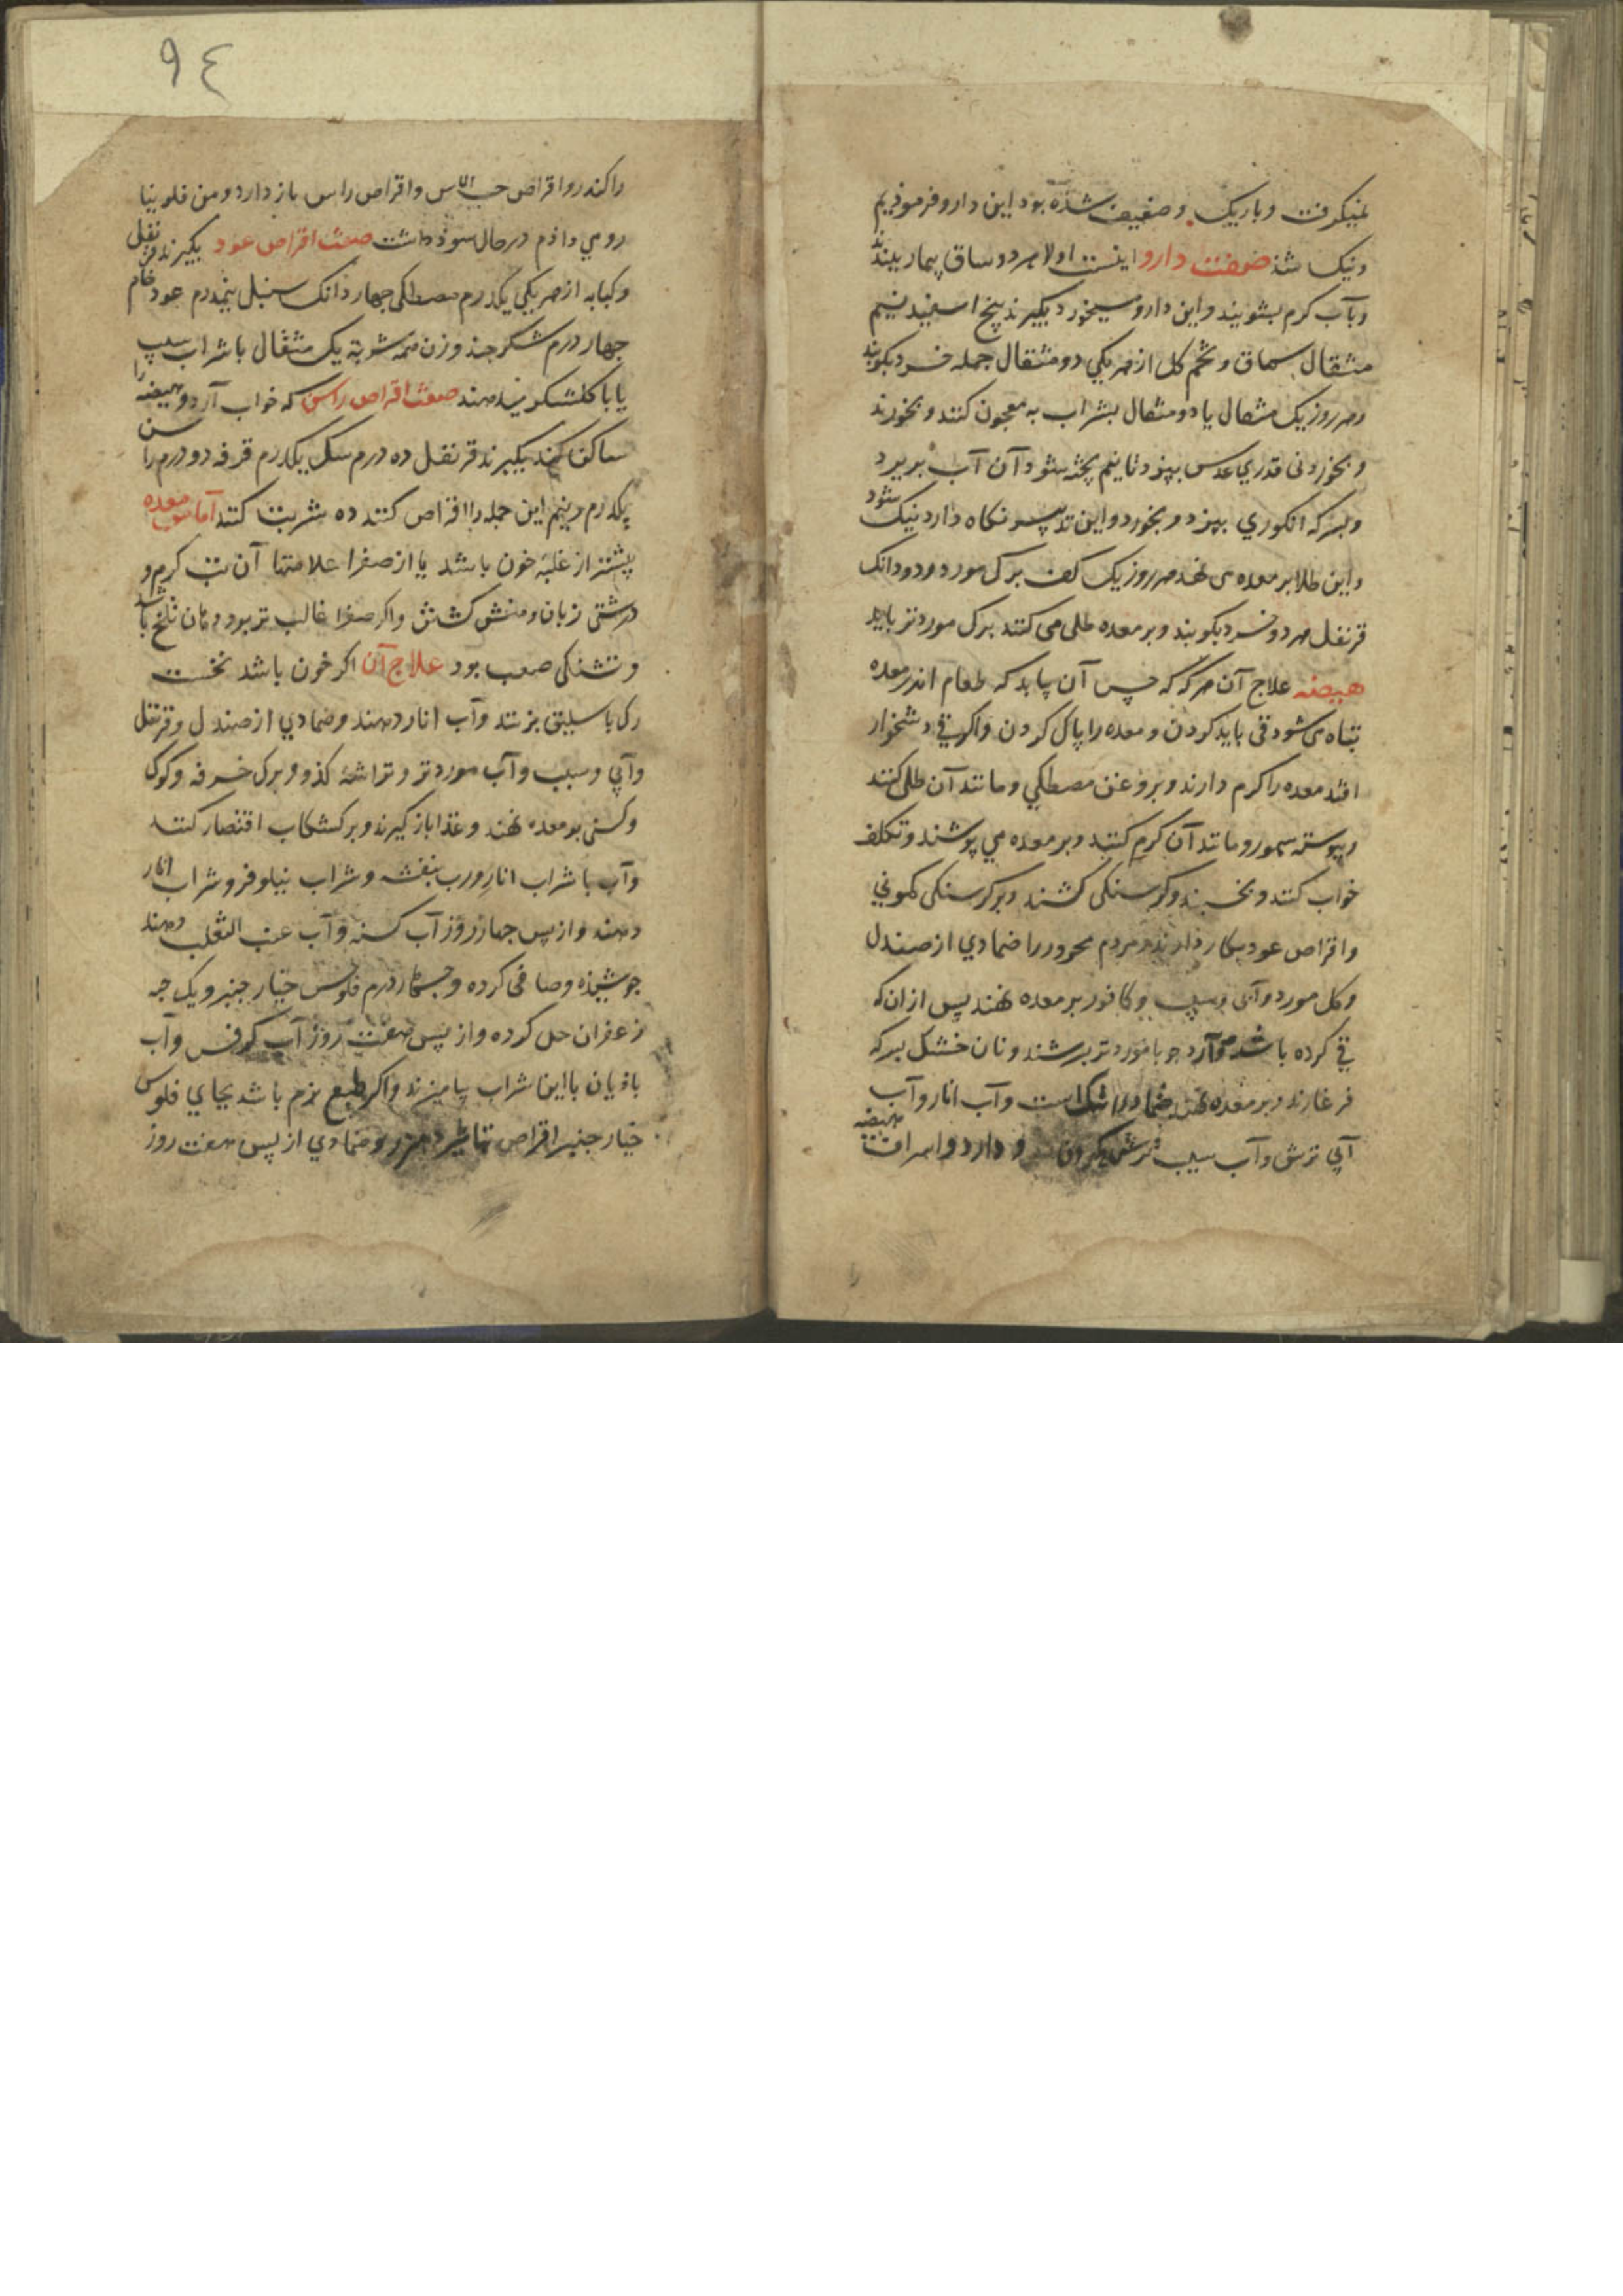 نمیکرفت وباریک وضعیف شذه بود این دارو فرموذیم
ونیک شذ صفت دارو اینست اولا هر دو ساق بیمار ببندند
وبآب کرم بشویند واین دارو میخورد بکیرند پنج اسفید نیم
مثقال سماق وتخم کل از هر یکی دو مثقال جمله خرد بکوبند
وهر روز یک مثقال یا دو مثقال بشراب به معجون کنند وبخورند
وبخوردنی قدری عدس بپزد تا نیم پخته شود آن آب بریزد
وبسرکه انکوری بپزد وبخورد واین تدبیر نکاه دارد نیک شود
واین طلا بر معده می نهد هر روز یک کف برک مورد ودو دانک
قرنفل هر دو خرد بکوبند وبر معده طلی می کنند برک مورد تر باید
هیضه علاج آن هر که که حس آن یابد که طعام اندر معده
تباه می شود قی باید کردن ومعده را پاک کردن واکر قی دشخوار
افتد معده را کرم دارند وبروغن مصطکی ومانند آن طلی کنند
وپیوسته سمور ومانند آن کرم کنند وبر معده می پوشند وتکلف
خواب کنند وبخسبند وکرسنکی کشند وبر کرسنکی کمونی
واقراص عود بکار دارند ومردم محرور را ضمادی از صندل
وکل مورد وآبی وسیب وکافور بر معده نهند پس ازان که
قی کرده باشد وآرد جو با مورد تر برشند ونان خشک بسرکه
فرغارند وبر معده نهند وآب انار وآب
آبی ترش وآب سیب ترش دارد واسراف هیضه
٩٤
را کندر واقراص حب الاس واقراص راسن باز دارد ومن فلونیا
رومی داذم در حال سوذ داشت صفت اقراص عود بکیرند قرنفل
وکبابه از هر یکی یکدرم مصطکی جهار دانک سنبل نیمدرم عود خام
جهار درم شکر جند وزن همه شربة یک مثقال با شراب سیب
یا با کلشکر بدهند صفت اقراص راسن که خواب آرد وهیضه را
ساکن کند بکیرند قرنفل ده درم سک یکدرم قرفه دو درم راسن
یکدرم ونیم این جمله را اقراص کنند ده شربت کنند آماس معده
بیشتر از غلبه خون باشد یا از صفرا علامتها آن تب کرم و
درشتی زبان ومنش کشتن واکر صفرا غالب تر بود دهان تلخ باشد
وتشنکی صعب بود علاج آن اکر خون باشد نخست
رک باسلیق بزنند وآب انار دهند وضمادی از صندل وقرنفل
وآبی وسیب وآب مورد تر وتراشه کذو وبرک خرفه وکوک
وکسنی بر معده نهند وغذا باز کیرند وبر کشکاب اقتصار کنند
وآب با شراب انار ورب بنفشه وشراب نیلوفر وشراب انار
دهند واز پس جهار روز آب کسنه وآب عنب الثعلب دهند
جوشیذه وصافی کرده وجهار درم فلوس خیار جنبر ویک حبه
زعفران حل کرده واز پس هفت روز آب کرفس وآب
باذیان با این شراب بیامیزند واکر طبع نرم باشد بجای فلوس
خیار جنبر اقراص دهند وضمادی از پس هفت روز